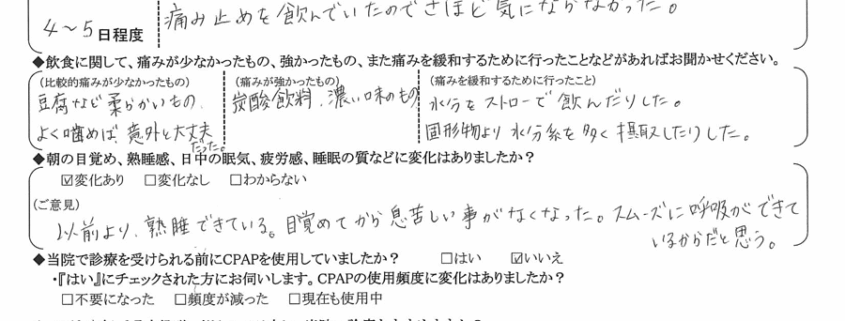 4〜5日程度
痛み止めを飲んでいたのでさほど気にならなかった。
◆飲食に関して、痛みが少なかったもの、強かったもの、また痛みを緩和するために行ったことなどがあればお聞かせください。
(比較的痛みが少なかったもの)
豆腐など柔らかいもの、
よく噛めば、意外と大丈夫
だった。
(痛みが強かったもの)
炭酸飲料、濃い味のもの
(痛みを緩和するために行ったこと)
水分をストローで飲んだりした。
固形物より水分系を多く摂取したりした。
◆朝の目覚め、熟睡感、日中の眠気、疲労感、睡眠の質などに変化はありましたか?
☑変化あり □変化なし □わからない
(ご意見)
以前より、熟睡できている。目覚めてから息苦しい事がなくなった。スムーズに呼吸ができて
いるからだと思う。
◆当院で診療を受けられる前にCPAPを使用していましたか? □はい ☑いいえ
・『はい』にチェックされた方にお伺いします。CPAPの使用頻度に変化はありましたか?
□不要になった □頻度が減った □現在も使用中